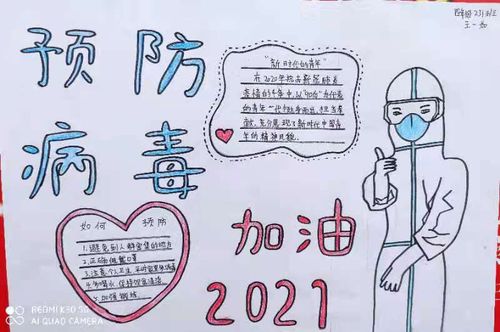 四年级231班
王一
预防
病毒
"新时代的青年"
在2020年抗击新冠肺炎
疫情的斗争中,以"90后"为代表
的青年一代挺身而出,担当奉
献,充分展现了新时代中国青
年的精神风貌.
如何 预防
1.避免到人群密集的地方
2.正确佩戴口罩
3.注意个人卫生
4.多喝水,保持
5.加强锻炼
加油
2021
REDMI K30 5G
AI QUAD CAMERA